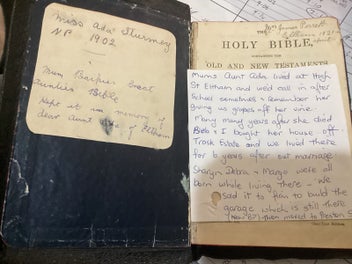 Miss Ada Sturmey
NP 1902
Mum Barkers Great
Aunties Bible
Kept it in memory of
dear Aunt of Eltham
James Perrott
Eltham 1921
THE
HOLY BIBLE,
CONTAINING THE
OLD AND NEW TESTAMENTS
Mums Aunt Ada lived at High
St Eltham and we'd call in after
School sometimes & remember her
giving us grapes off her vine.
Many many years after she died
Bob & I bought her house off
Trosk Estate and we lived there
for 6 years after our marriage
Sharyn Debra & Margo were all
born while living there - we
sold it to fran to build the
garage which is still there
then moved to Preston